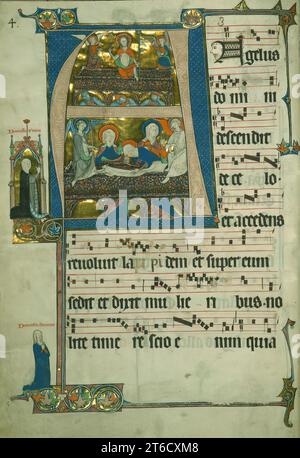 4.
3
Angelus
do mi ni
descendit
de ce lo
et accedens
revoluit la pi dem et super eum
sedit et dixit mu lie n bus no
lite time re scio e nim quia